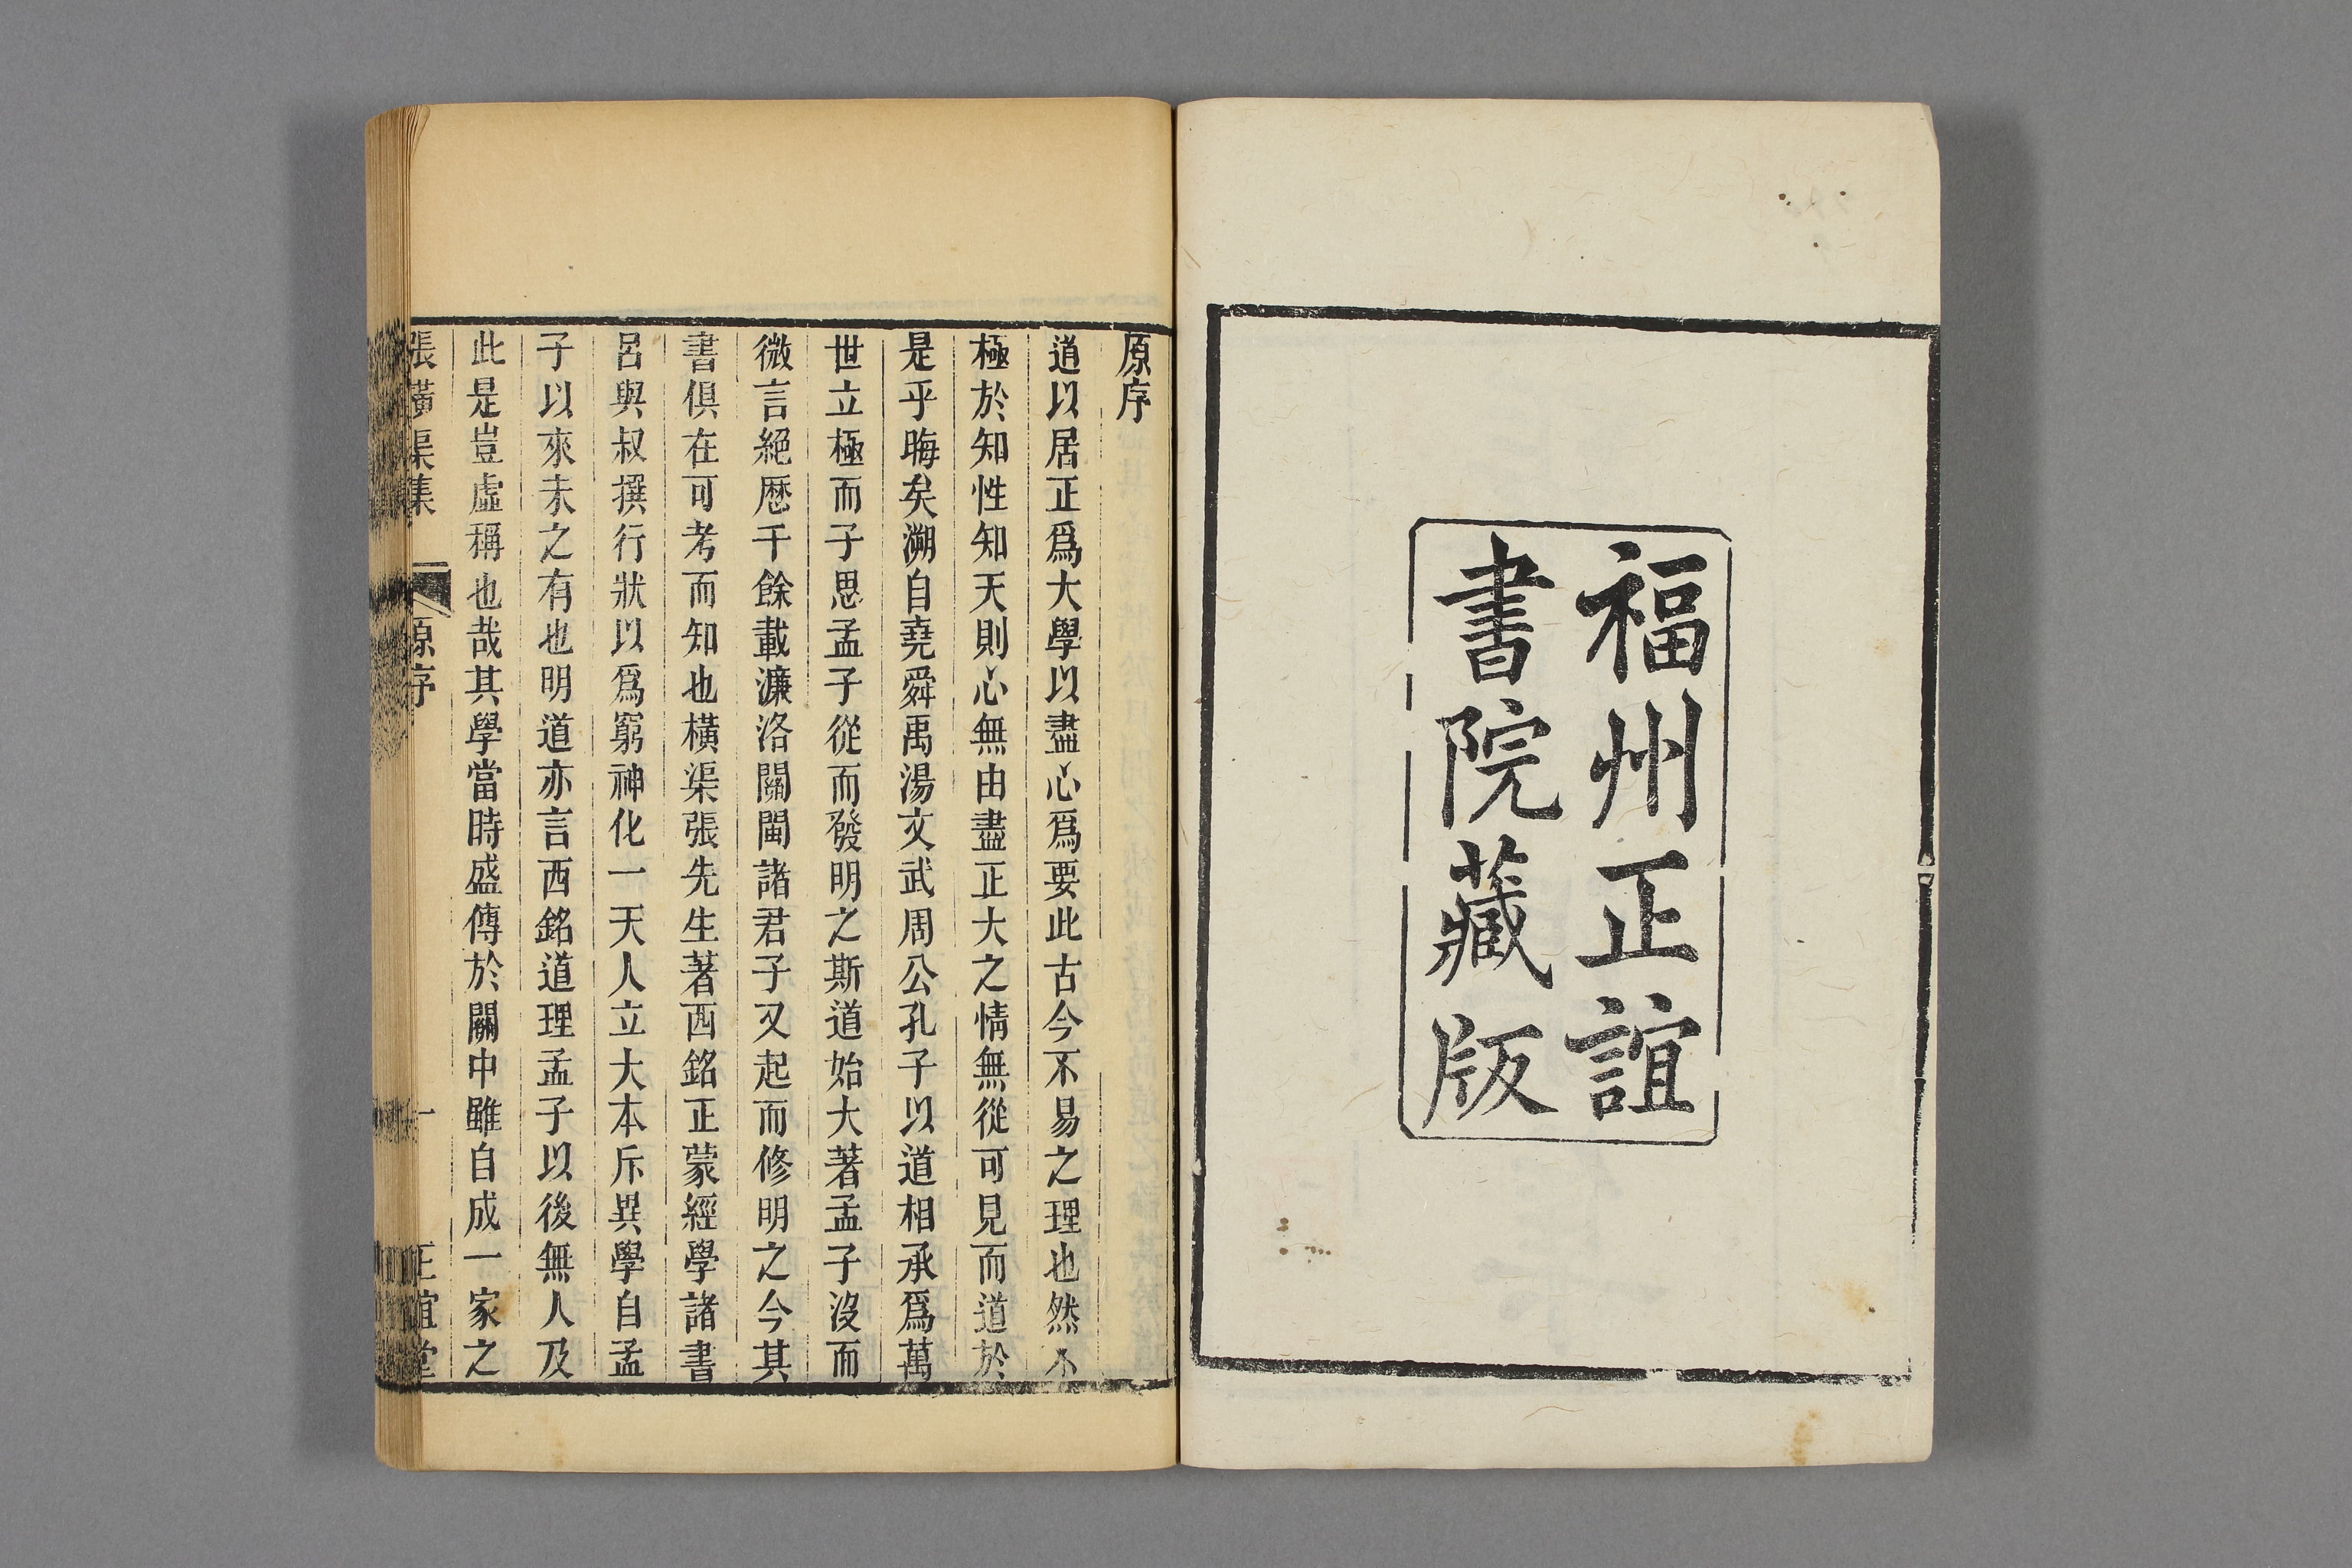 福州正誼
書院藏版
原序
道以居正爲大學以盡心爲要此古今不易之理也然不
極於知性知天則心無由盡正大之情無從可見而道於
是乎晦矣溯自堯舜禹湯文武周公孔子以道相承爲萬
世立極而子思孟子從而發明之斯道始大著孟子沒而
微言絕歷千餘載濂洛關閩諸君子又起而修明之今其
書俱在可考而知也橫渠張先生著西銘正蒙經學諸書
呂與叔撰行狀以爲窮神化一天人立大本斥異學自孟
子以來未之有也明道亦言西銘道理孟子以後無人及
此是豈虛稱也哉其學當時盛傳於關中雖自成一家之
張橫渠集 原序 一 正誼堂